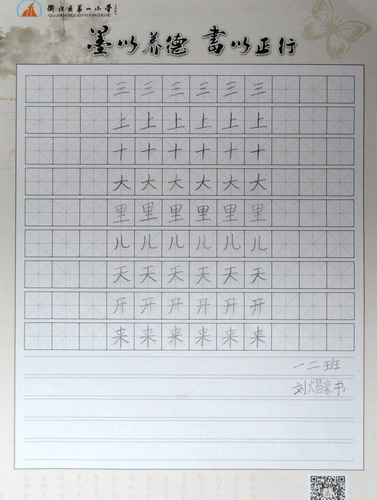 衢江区第一小学
QUJIANGQUDIYIXIAOXUE
墨以养德 书以正行
三三三三三三三
上上上上上上上
十十十十十十十
大大大大大大大
里里里里里里里
儿儿儿儿儿儿儿
天天天天天天天
开开开开开开开
来来来来来来来
一二班